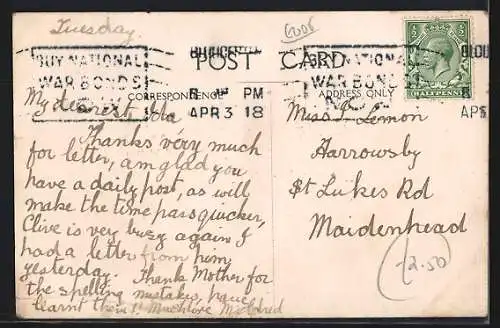 Tuesday
GLOUCESTER
GLOU
BUY NATIONAL
WAR BONDS
NOW
POST CARD
WAR BONDS
CORRESPONDENCE
ADDRESS ONLY
PM
APR 3 18
8
AP
HALFPENNY
My dearest Ida
Thanks very much
for letter, am glad you
have a daily post, as will
make the time pass quicker,
Clive is very busy again I
had a letter from him
yesterday. Thank Mother for
the spelling mistakes, have
learnt them! Much love Mildred
Miss I. Lemon
Harrowsby
St Lukes Rd
Maidenhead
2.50